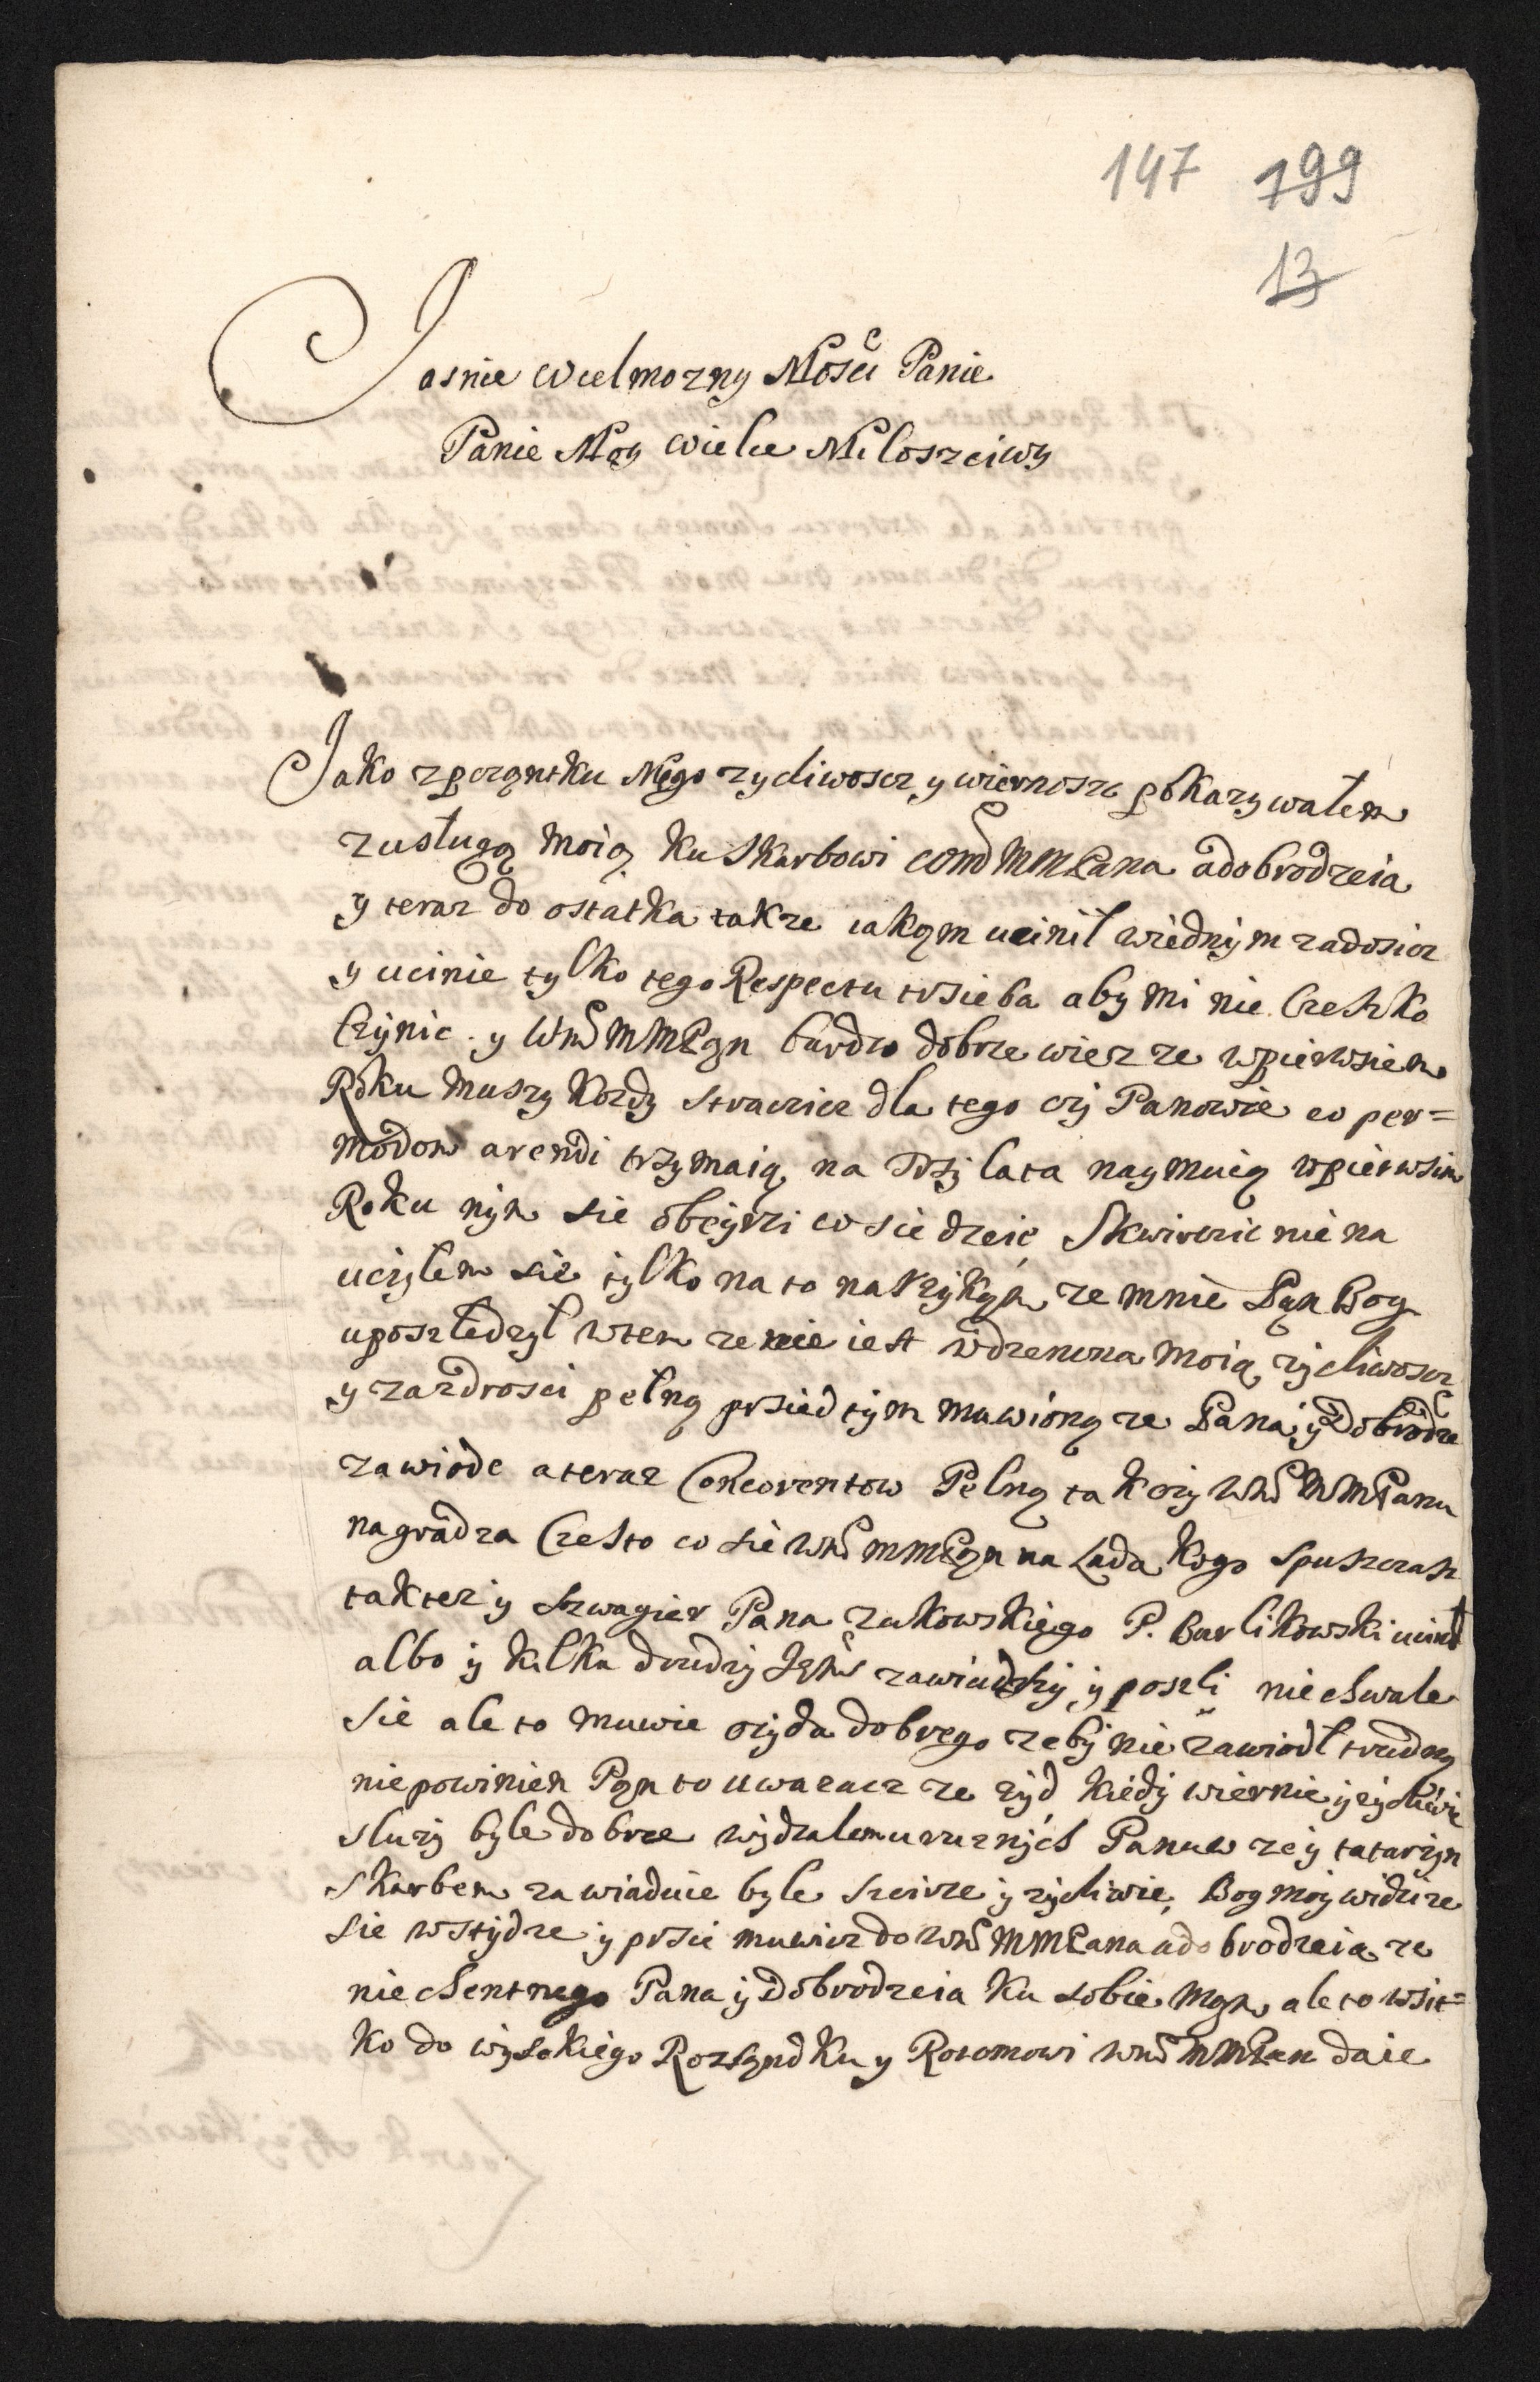 147 199
13
Jasnie Wielmozny Mości Panie
Panie Moy wielce Miloszciwy
Jako zpoczątku Mego zycliwoscz y wiernoszc pokazywałem
zusługą moią ku Skarbowi WMM Pana adobrodzeia
y teraz do ostatka takze iakom ucinił wiednym zadosicz
y ucinie tylko tego Respectu trsieba aby mi nie Czeszko
Czynic. y WMMPan bardzo dobrze wiesz ze wpierwsiem
Roku muszy kozdy straczicz dla tego czy Panowie co per=
modom arendi trzymaią na trzy lata naymuią wpierwsim
Roku nym sie obeyrzi co sie dzeie Skwirczic nie na
uczylem sie tylko na to nakrzykam, ze mnie Pan Bog
uposzledzyl wtem ze nie iest wdzenczna moia zycliwoscz
y zazdrosci pelną prsied tym muwioną ze Pana y Dobrodze
zawiode a teraz Concorentow Pelną tak czy WMMPanu
nagradza Czesto co sie WMMPan na lada kogo spuszczasz
takter y szwagier Pana zukowskiego P. Barlikowski ucinil
albo y kilka drudzy zawiudszy y poszli nie chwale
sie ale to muwie ozyda dobrego zeby nie zawiodl trudny
nie powinien Pan to uwazacz ze zyd kiedy wiernie y zycliwie
sluzy byle dobrze wydzalem u ruznych Panuw ze y tatarzyn
skarbem zawiaduie byle szcirze y zycliwie, Bog moy widzi ze
sie wstydze y prsie muwicz do WMMPana adobrodzeia ze
nie chentnego Pana y Dobrodzeia ku sobie mam, ale to wsit=
ko do wysokiego Rozsąndku y Rozomowi WMMPan daie